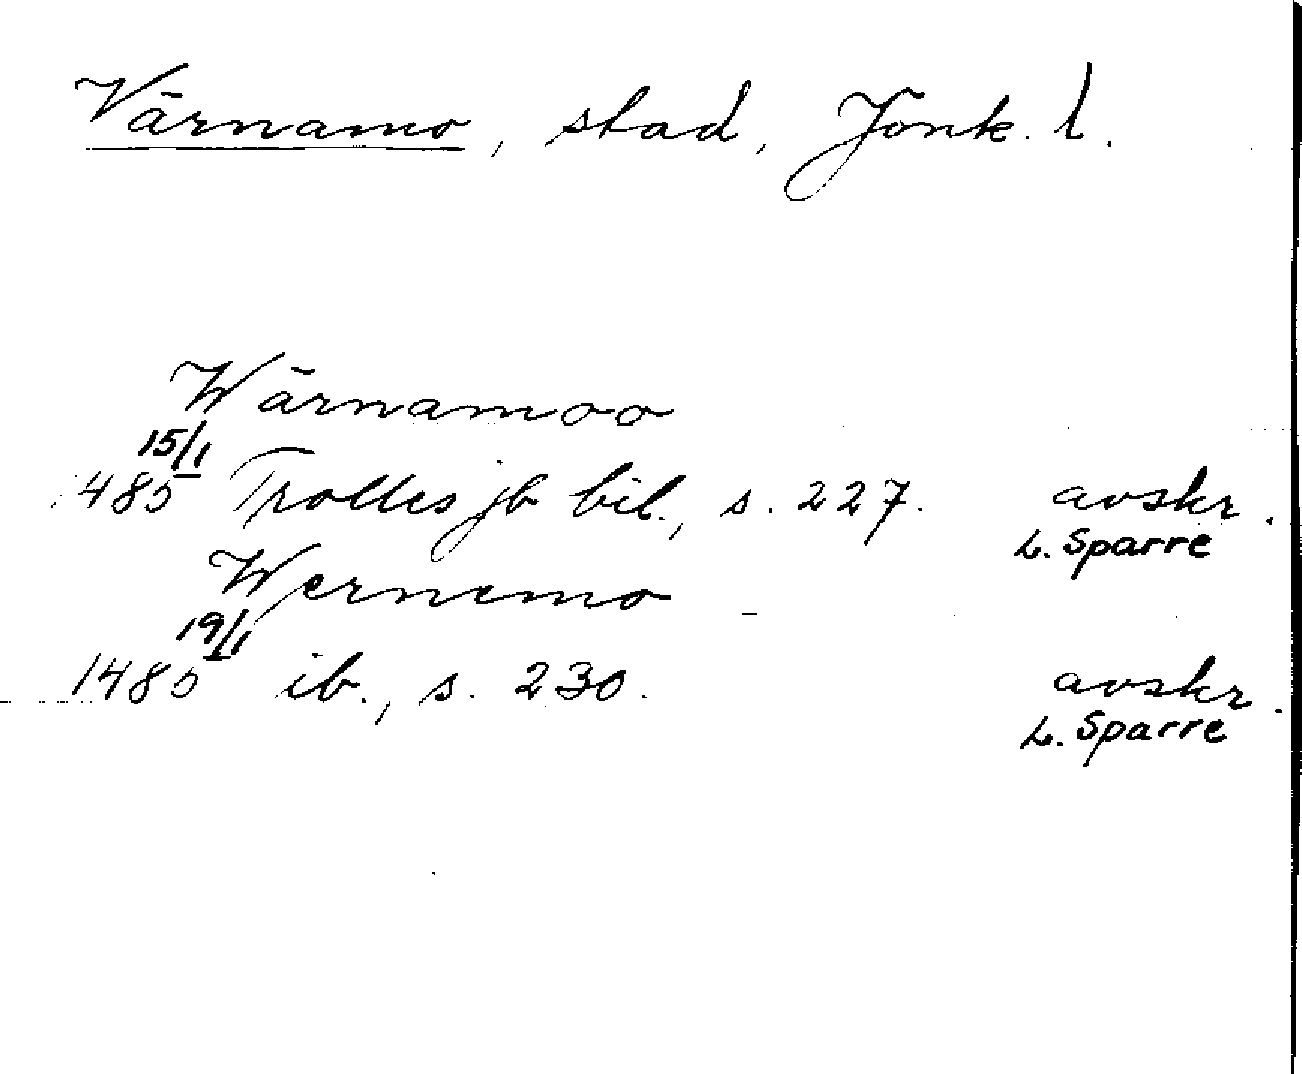 Värnamo, stad, Jönk. l.
Wärnamoo
15/1
1485 Trolles jb bil., s. 227. avskr.
L. Sparre
Wernemo
19/1
1485 ib., s. 230. avskr.
L. Sparre